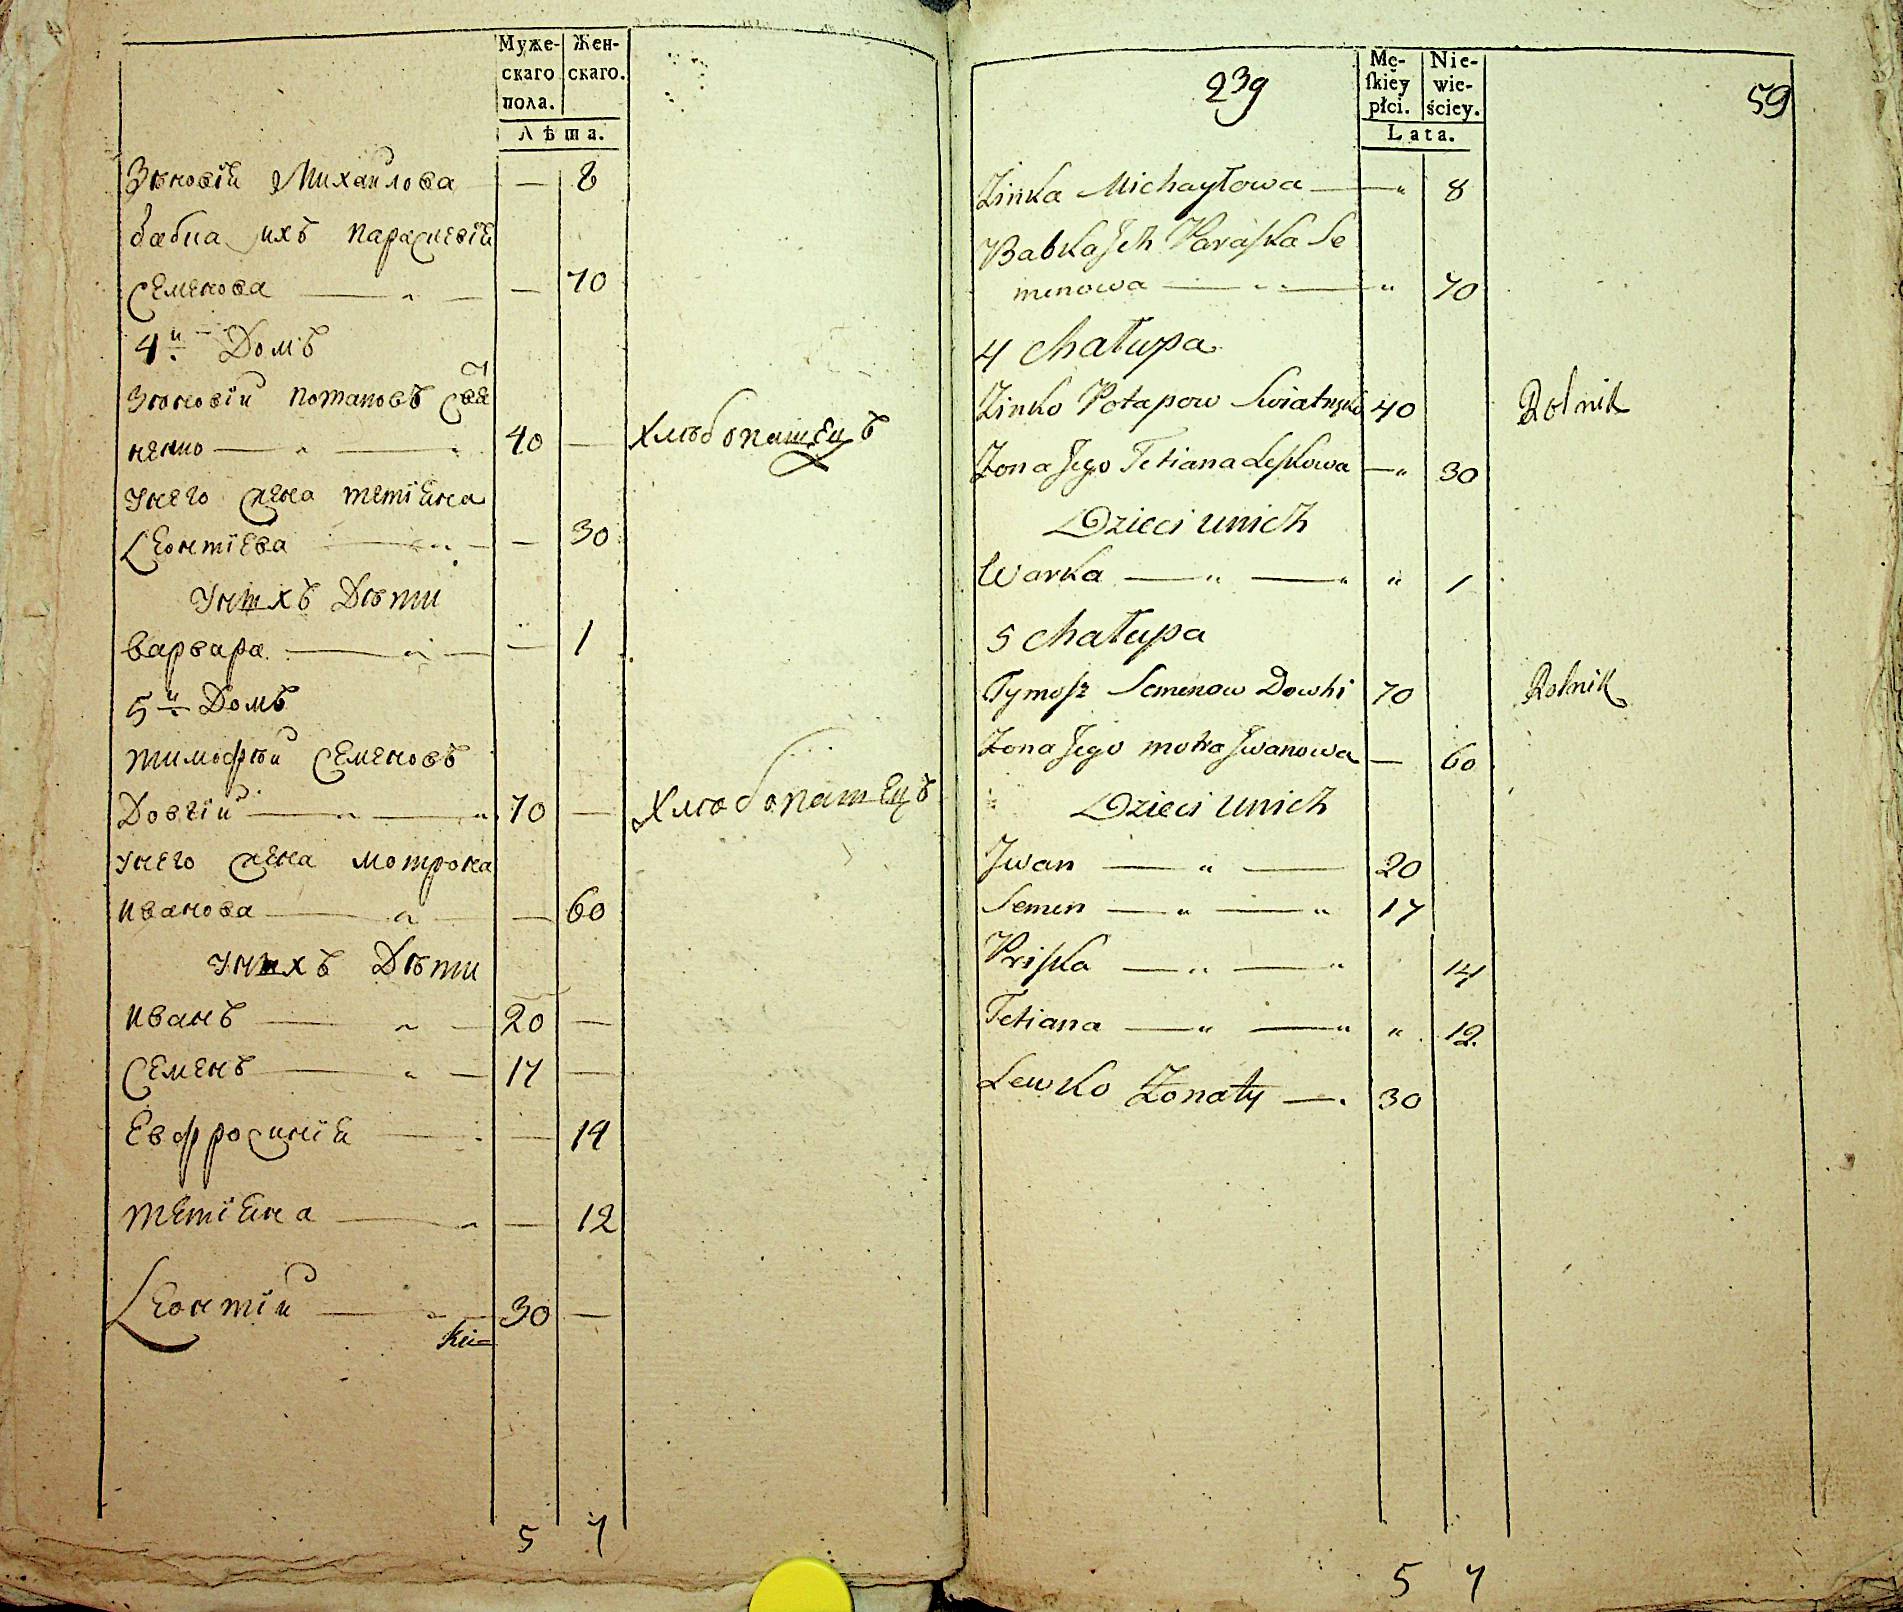 Муже- Жен-
скаго скаго.
пола.
Лѣта.
Зѣновіи Михаилова — 8
бабка ихъ параскевія
Семенова — 70
4й Домъ
Зѣновіи потаповъ Свят
ненко — 40 — хлѣбопашецъ
унего жена тетіяна
Леонтіева — 30
Унихъ Дѣти
варвара — 1
5й Домъ
тимофѣй Семеновъ
Довгій — 70 — хлѣбопашецъ
унего жена мотрона
иванова — 60
унихъ Дѣти
иванъ — 20 —
Семенъ — 17 —
Евфросинія — 14
тетіяна — 12
Леонтій — 30 —
5 7
239
59
Mę- Nie-
skiey wie-
płci. ściey.
Lata.
Zinka Michayłowa — „ 8
Babka Jch Paraska Se
menowa — „ 70
4 Chałupa
Zinko Potapow Swiatnenko 40 Rolnik
Zona Jego Tetiana Leskowa — „ 30
Dzieci unich
Warka — „ — „ „ 1
5 Chałupa
Tymosz Semenow Dowhi 70 Rolnik
Zona Jego motra Jwanowa — 60
Dzieci unich
Jwan — „ — 20
Semen — „ — „ 17
Priska — „ — „ 14
Tetiana — „ — „ „ 12
Lewko Żonaty — 30
5 7